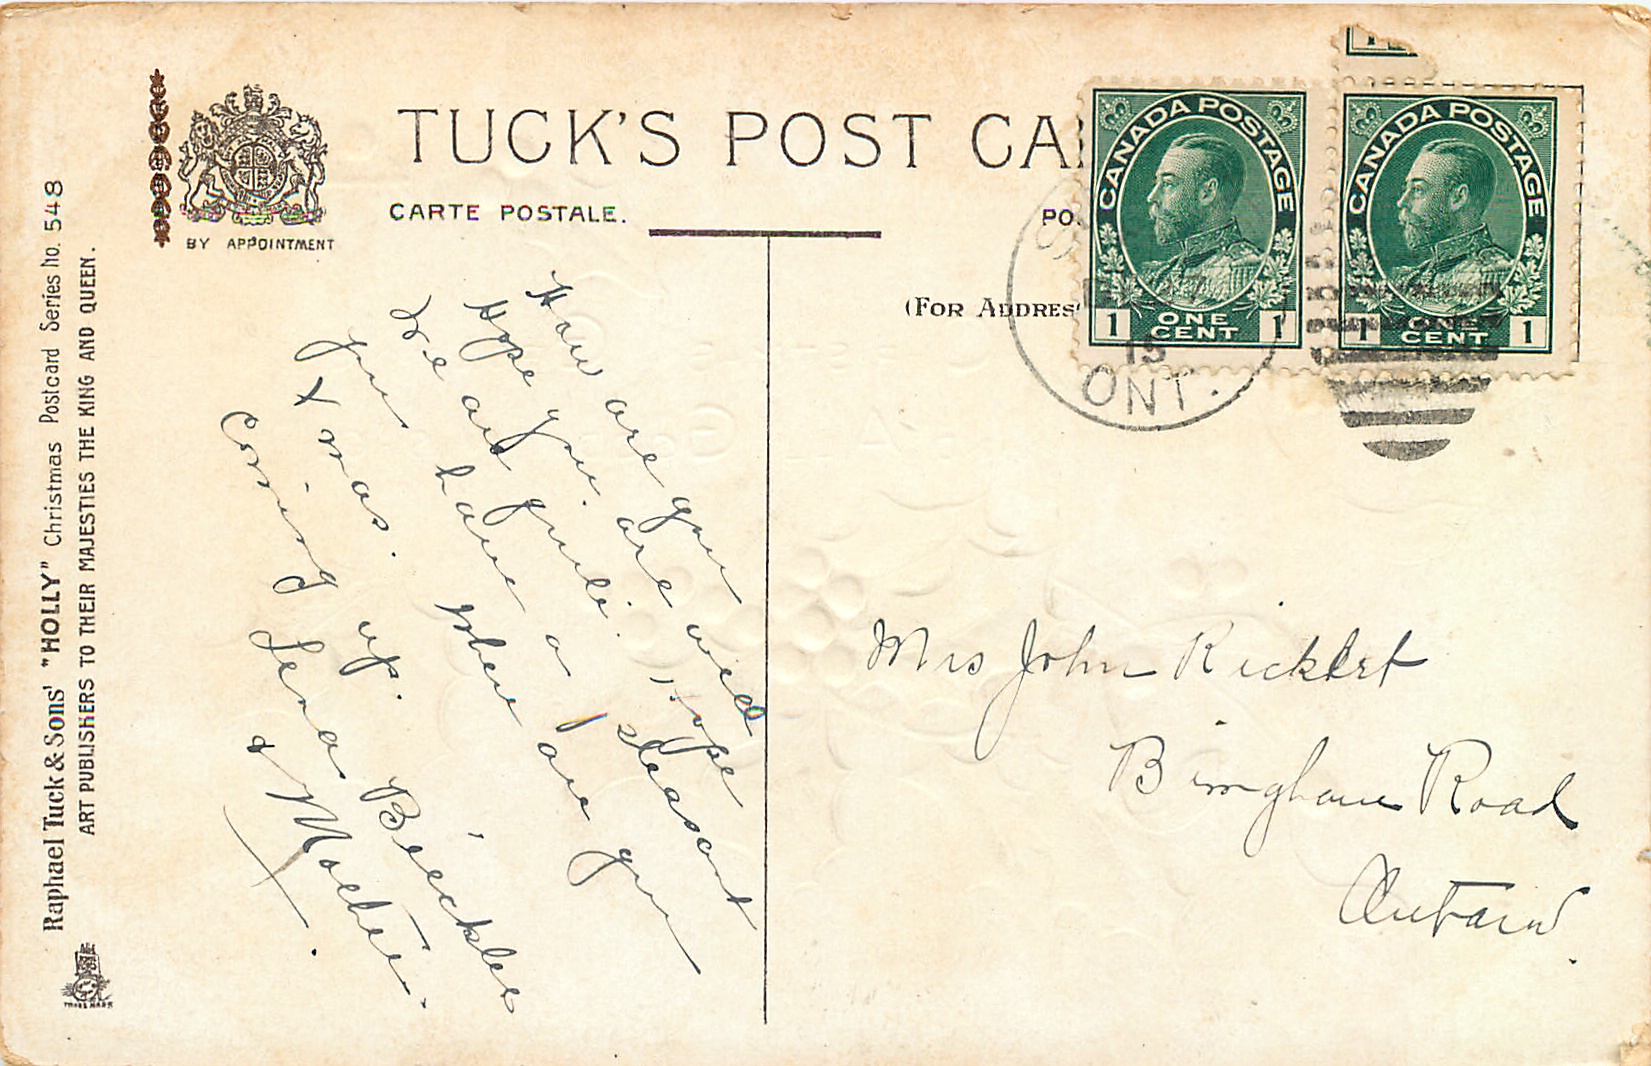 Raphael Tuck & Sons' "HOLLY" Christmas Postcard Series No. 548
ART PUBLISHERS TO THEIR MAJESTIES THE KING AND QUEEN.
TRADE MARK
BY APPOINTMENT
TUCK'S POST CA
CARTE POSTALE.
PO
(FOR ADDRES
CANADA POSTAGE
1 ONE CENT 1
CANADA POSTAGE
1 ONE CENT 1
15
ONT.
How are you well
Hope you are Hope
We are quite. pleasant
you have a
Xmas. when are you
coming up.
Lena Beckler
& Mother.
Mrs John Rickert
Bingham Road
Ontario